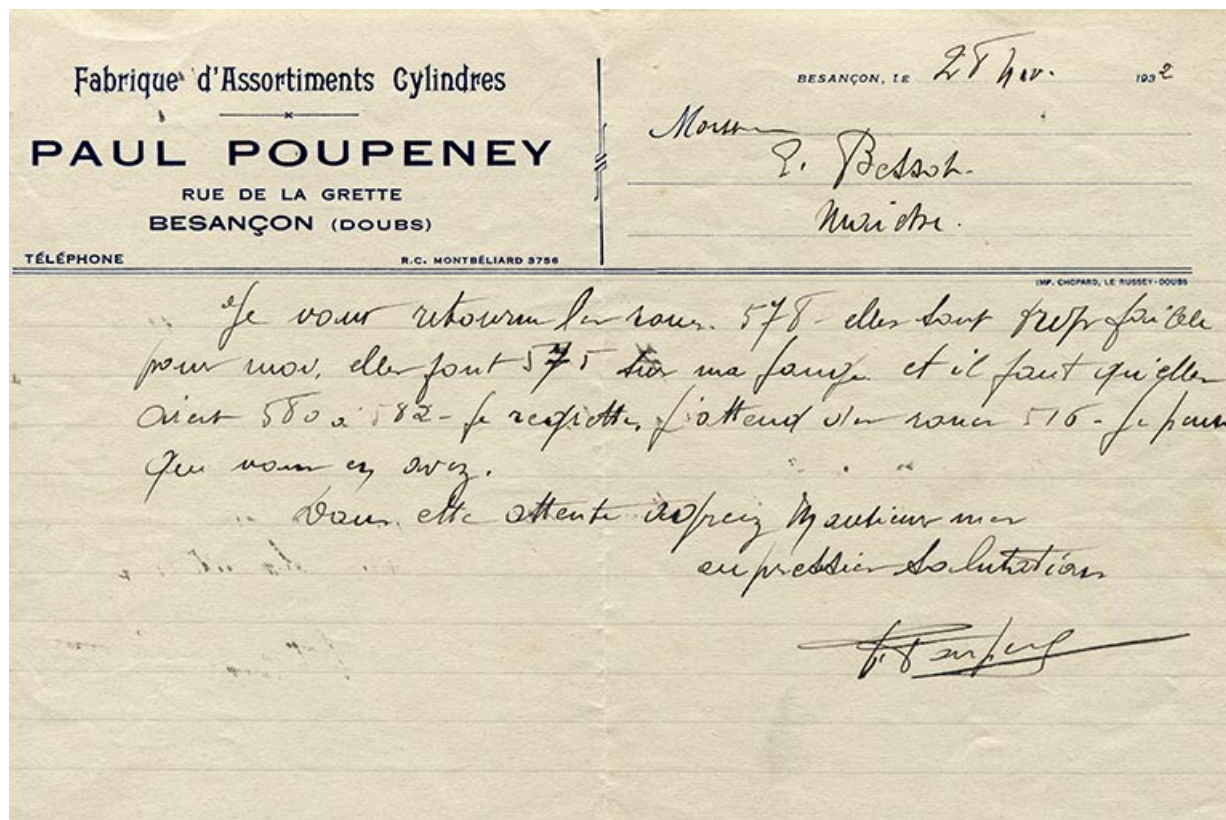 Fabrique d'Assortiments Cylindres
PAUL POUPENEY
RUE DE LA GRETTE
BESANÇON (DOUBS)
TÉLÉPHONE
R.C. MONTBÉLIARD 3756
BESANÇON, LE 28 Nov. 1932
Monsieur
E. Besson.
IMP. CHOPARD, LE RUSSEY-DOUBS
Je vous retourne les roues. 578 - elles sont trop faible
pour moi, elles font 575 sur ma jauge et il faut qu'elles
aient 580 à 582 - je regrette, j'attend des roues 516 - Je pense
que vous en avez.
Dans cette attente agreez Monsieur mes
empressées salutations
P. Poupeney